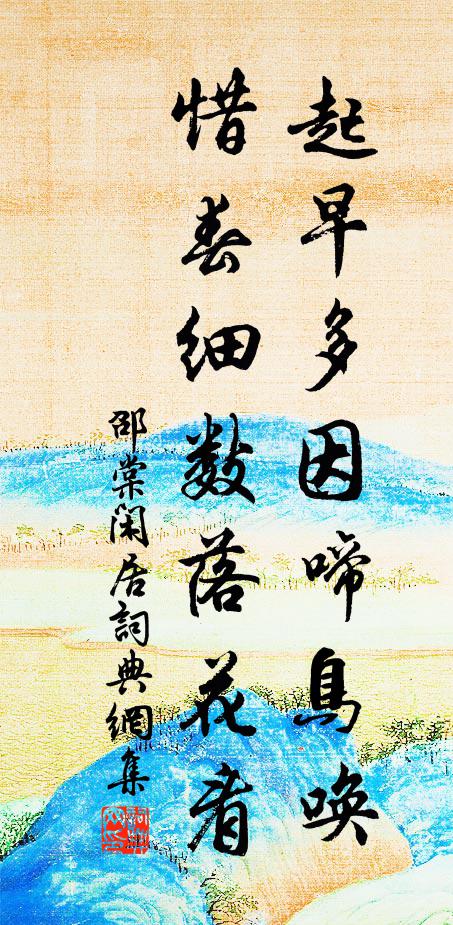 起早多因啼鳥唤
惜春细数落花看
邵棠閑居詞典網集